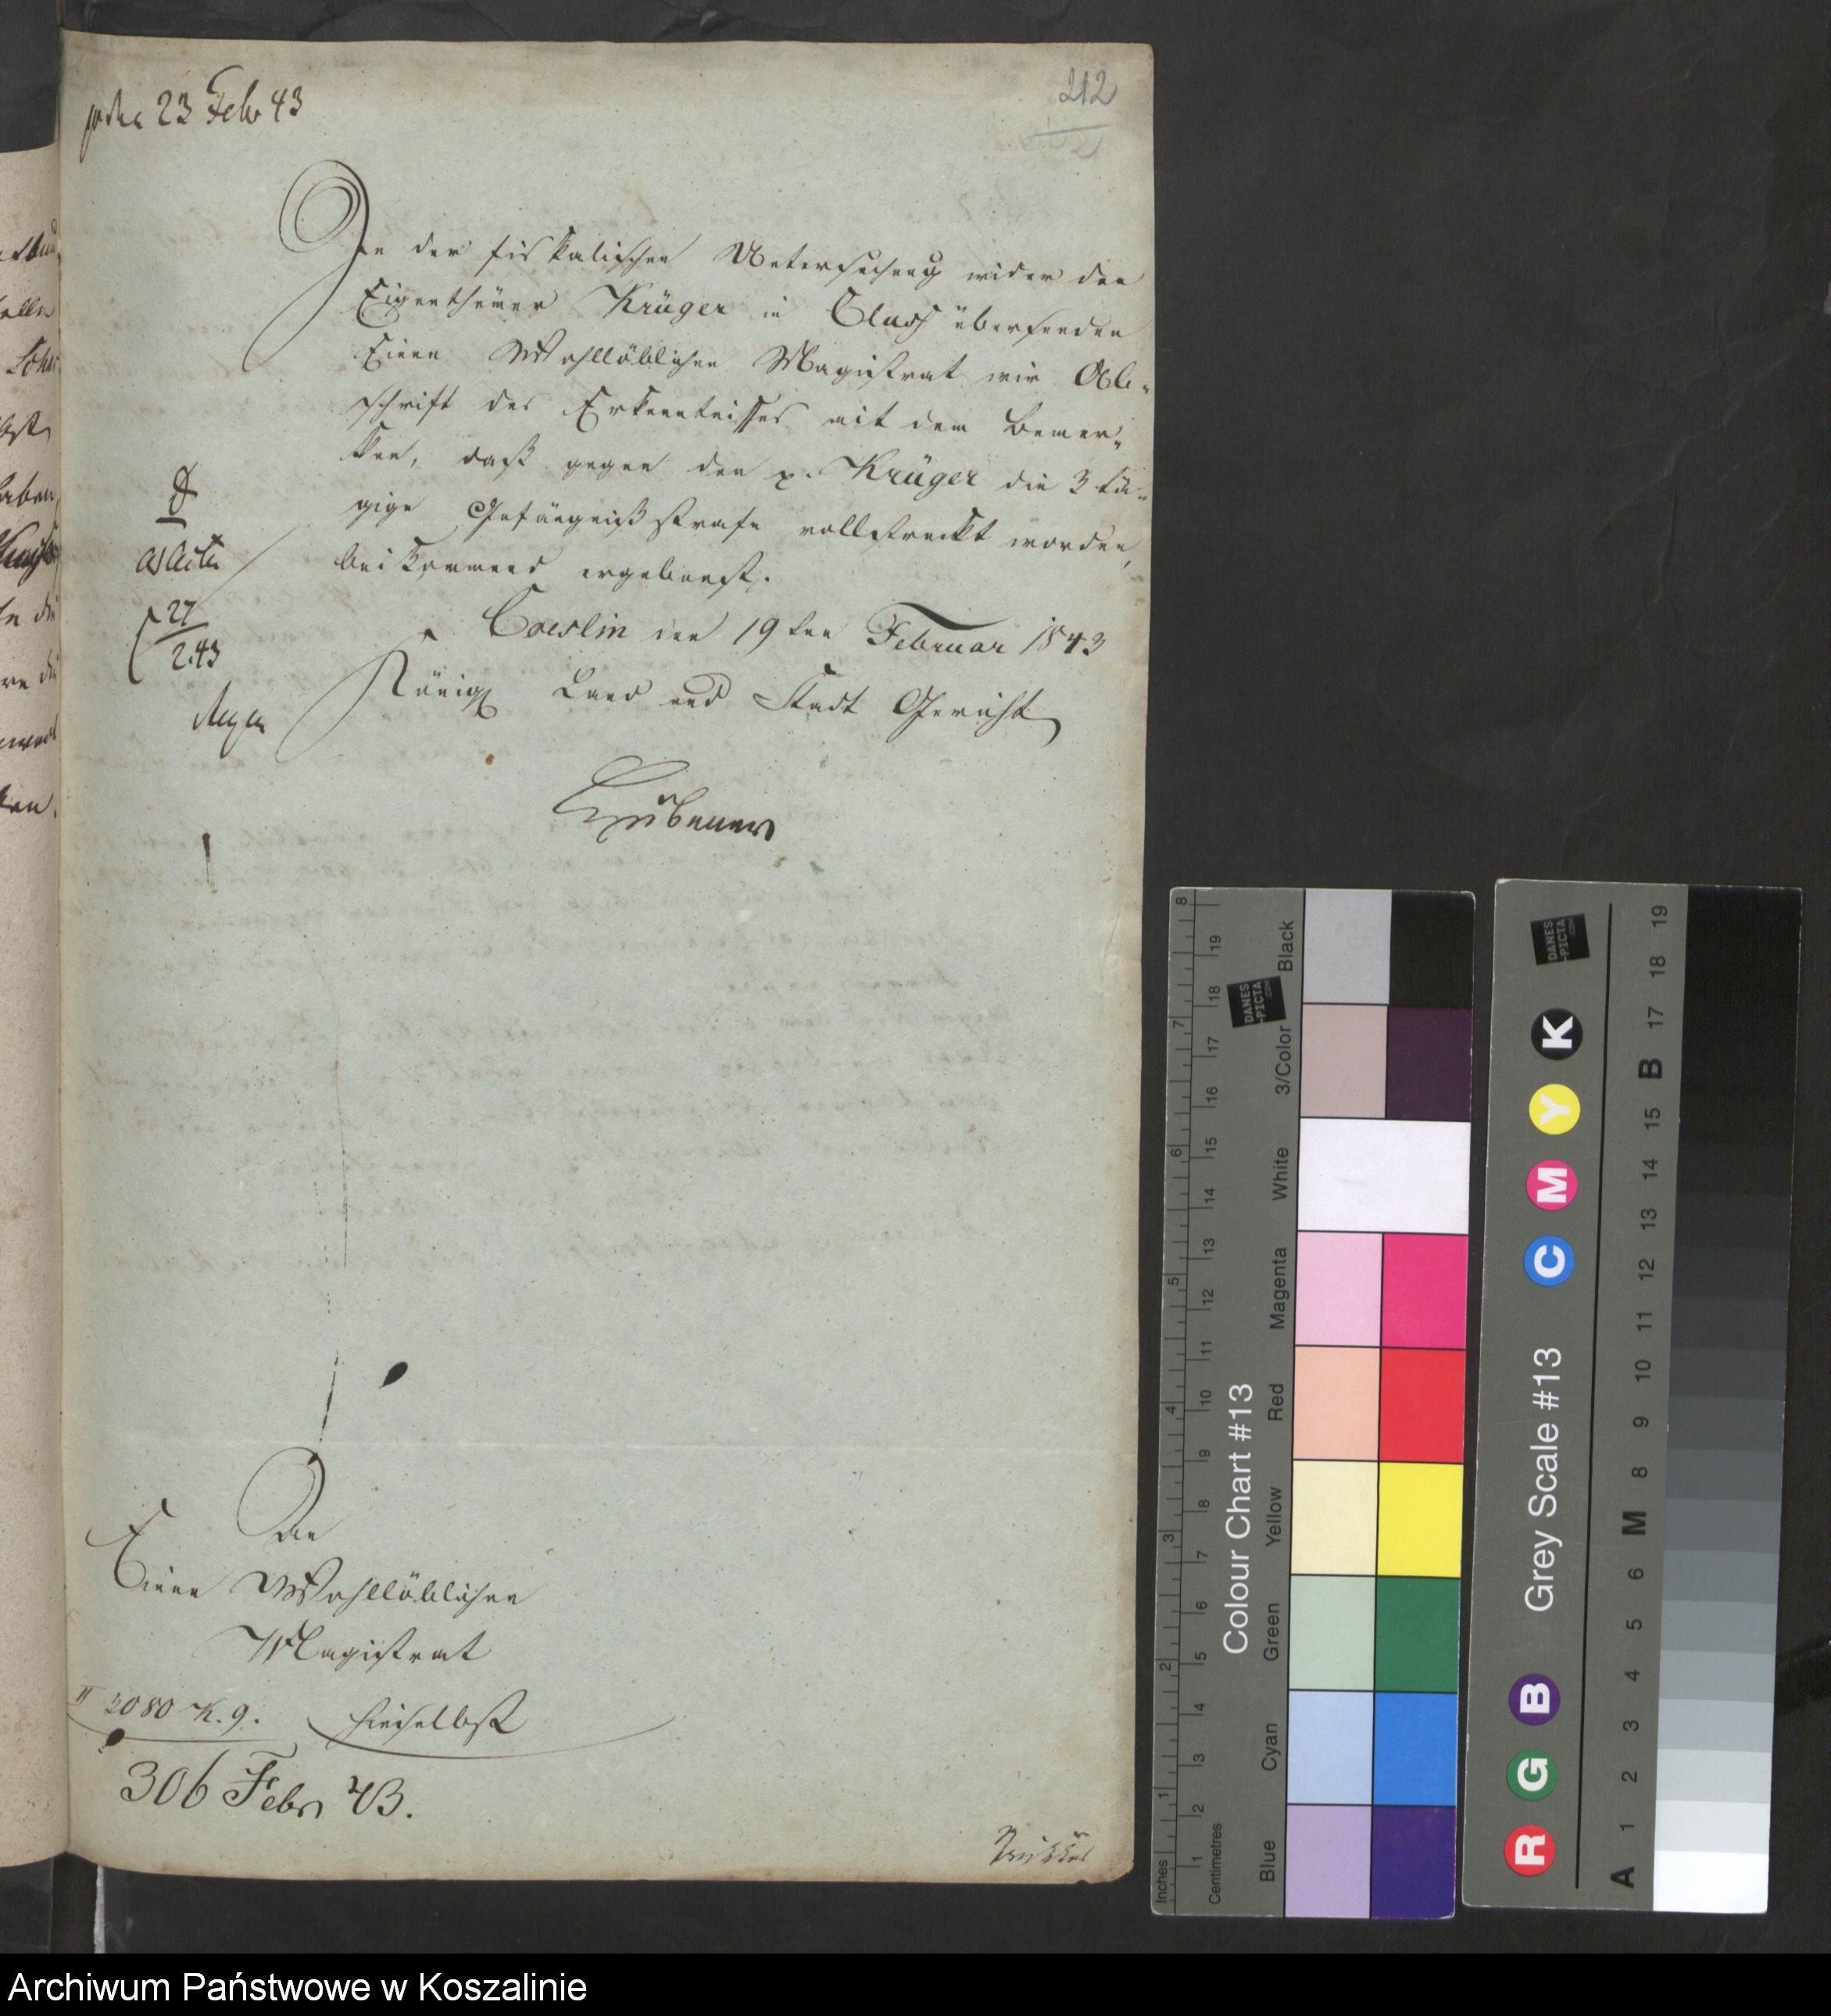 23 Febr 43
212
In der fiskalischen Untersuchung wider den
Eigenthümer Krüger in Cluss übersenden
Einem Wohllöblichen Magistrat wir Ab-
schrift des Erkenntnisses mit dem Bemer-
ken, daß gegen den p. Krüger die 3 tä-
gige Gefängnißstrafe vollstreckt worden,
beikommend ergebenst.
Coeslin den 19ten Februar 1843
Königl Land und Stadt Gericht
Hübener
ad acta
27
2.43
An
Einen Wohllöblichen
Magistrat
hieselbst
II 2080 K. 9.
306 Febr 43.
Archiwum Państwowe w Koszalinie
Colour Chart #13
Blue
Cyan
Green
Yellow
Red
Magenta
White
3/Color
Black
Inches
1 2 3 4 5 6 7 8
Centimetres
1 2 3 4 5 6 7 8 9 10 11 12 13 14 15 16 17 18 19
DANES
-PICTA
.COM
Grey Scale #13
R G B
C M Y K
A 1 2 3 4 5 6 M 8 9 10 11 12 13 14 15 B 17 18 19
DANES
-PICTA
.COM